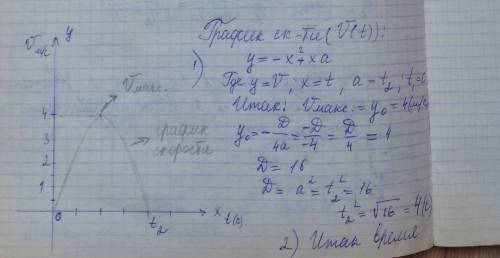 V м/с
y
Vмакс.
4
график
скорости
3
2
1
0
t₂
x t(с)
График ск-ти (V(t)):
1) y = -x² + xa
Где y = V, x = t, a = t₂, t₁ = 0
Итак: Vмакс. = y₀ = 4 (м/с)
y₀ = -D/4a = -D/-4 = D/4 = 4
D = 16
D = a² = t₂² = 16
t₂² = √16 = 4 (с)
2) Итак время